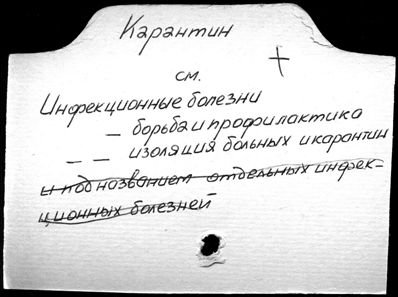 Карантин
см.
Инфекционные болезни
— борьба и профилактика
— — изоляция больных и карантин
и под названием отдельных инфек-
ционных болезней